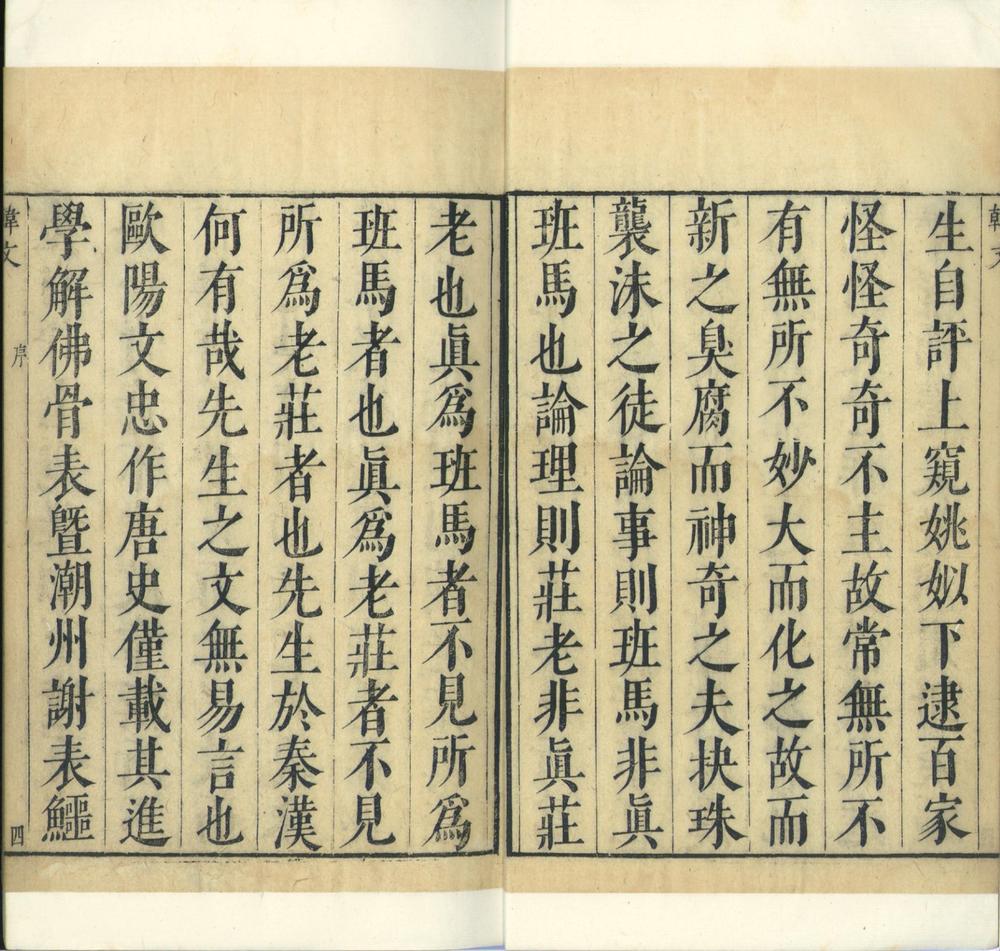 生自評上窺姚姒下逮百家
怪怪奇奇不主故常無所不
有無所不妙大而化之故而
新之臭腐而神奇之夫抉珠
襲沬之徒論事則班馬非眞
班馬也論理則莊老非眞莊
老也眞爲班馬者不見所爲
班馬者也眞爲老莊者不見
所爲老莊者也先生於秦漢
何有哉先生之文無易言也
歐陽文忠作唐史僅載其進
學解佛骨表曁潮州謝表鱷
韓文
序
四